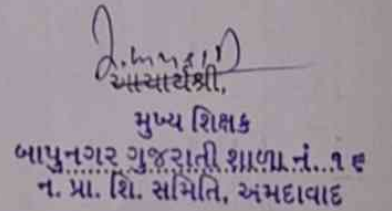 આચાર્યશ્રી,
મુખ્ય શિક્ષક
બાપુનગર ગુજરાતી શાળા નં. ૧૯
ન. પ્રા. શિ. સમિતિ, અમદાવાદ